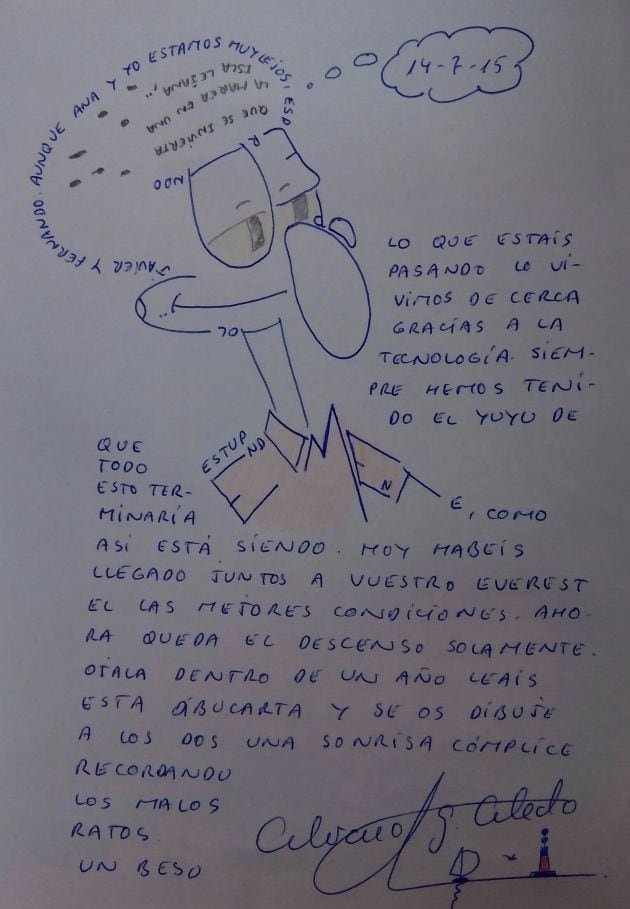 14-7-15
JAVIER Y FERNANDO. AUNQUE ANA Y YO ESTAMOS MUY LEJOS, ESP
R
NDO
QUE SE INVIERTA
LA MAREA EN UNA
ISLA LEJANA,
OL
LO QUE ESTAIS
PASANDO LO VI-
VIMOS DE CERCA
GRACIAS A LA
TECNOLOGÍA. SIEM-
PRE HEMOS TENI-
DO EL YUYU DE
QUE
TODO
ESTO TER-
MINARÍA
ESTUP
ND
N
E, COMO
ASI ESTÁ SIENDO. HOY HABEIS
LLEGADO JUNTOS A VUESTRO EVEREST
EL LAS MEJORES CONDICIONES. AHO-
RA QUEDA EL DESCENSO SOLAMENTE.
OJALA DENTRO DE UN AÑO LEAIS
ESTA DIBUCARTA Y SE OS DIBUJE
A LOS DOS UNA SONRISA CÓMPLICE
RECORDANDO
LOS MALOS
RATOS.
UN BESO
Alvaro G. Aledo